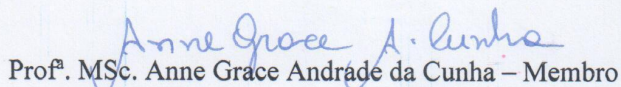 Anne Grace A. Cunha
Profª. MSc. Anne Grace Andrade da Cunha – Membro